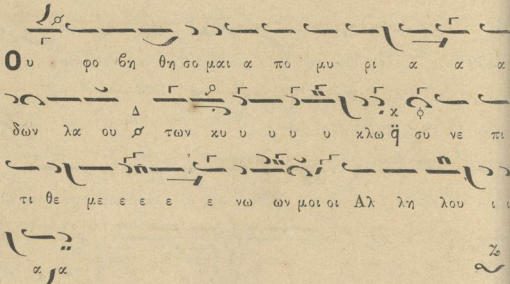 Ου φο βη θη σο μαι α πο μυ ρι α α α
δων λα ου των κυ υ υ υ υ κλω συ νε πι
τι θε με ε ε ε ε νω ων μοι οι Αλ λη λου ι ι
α α